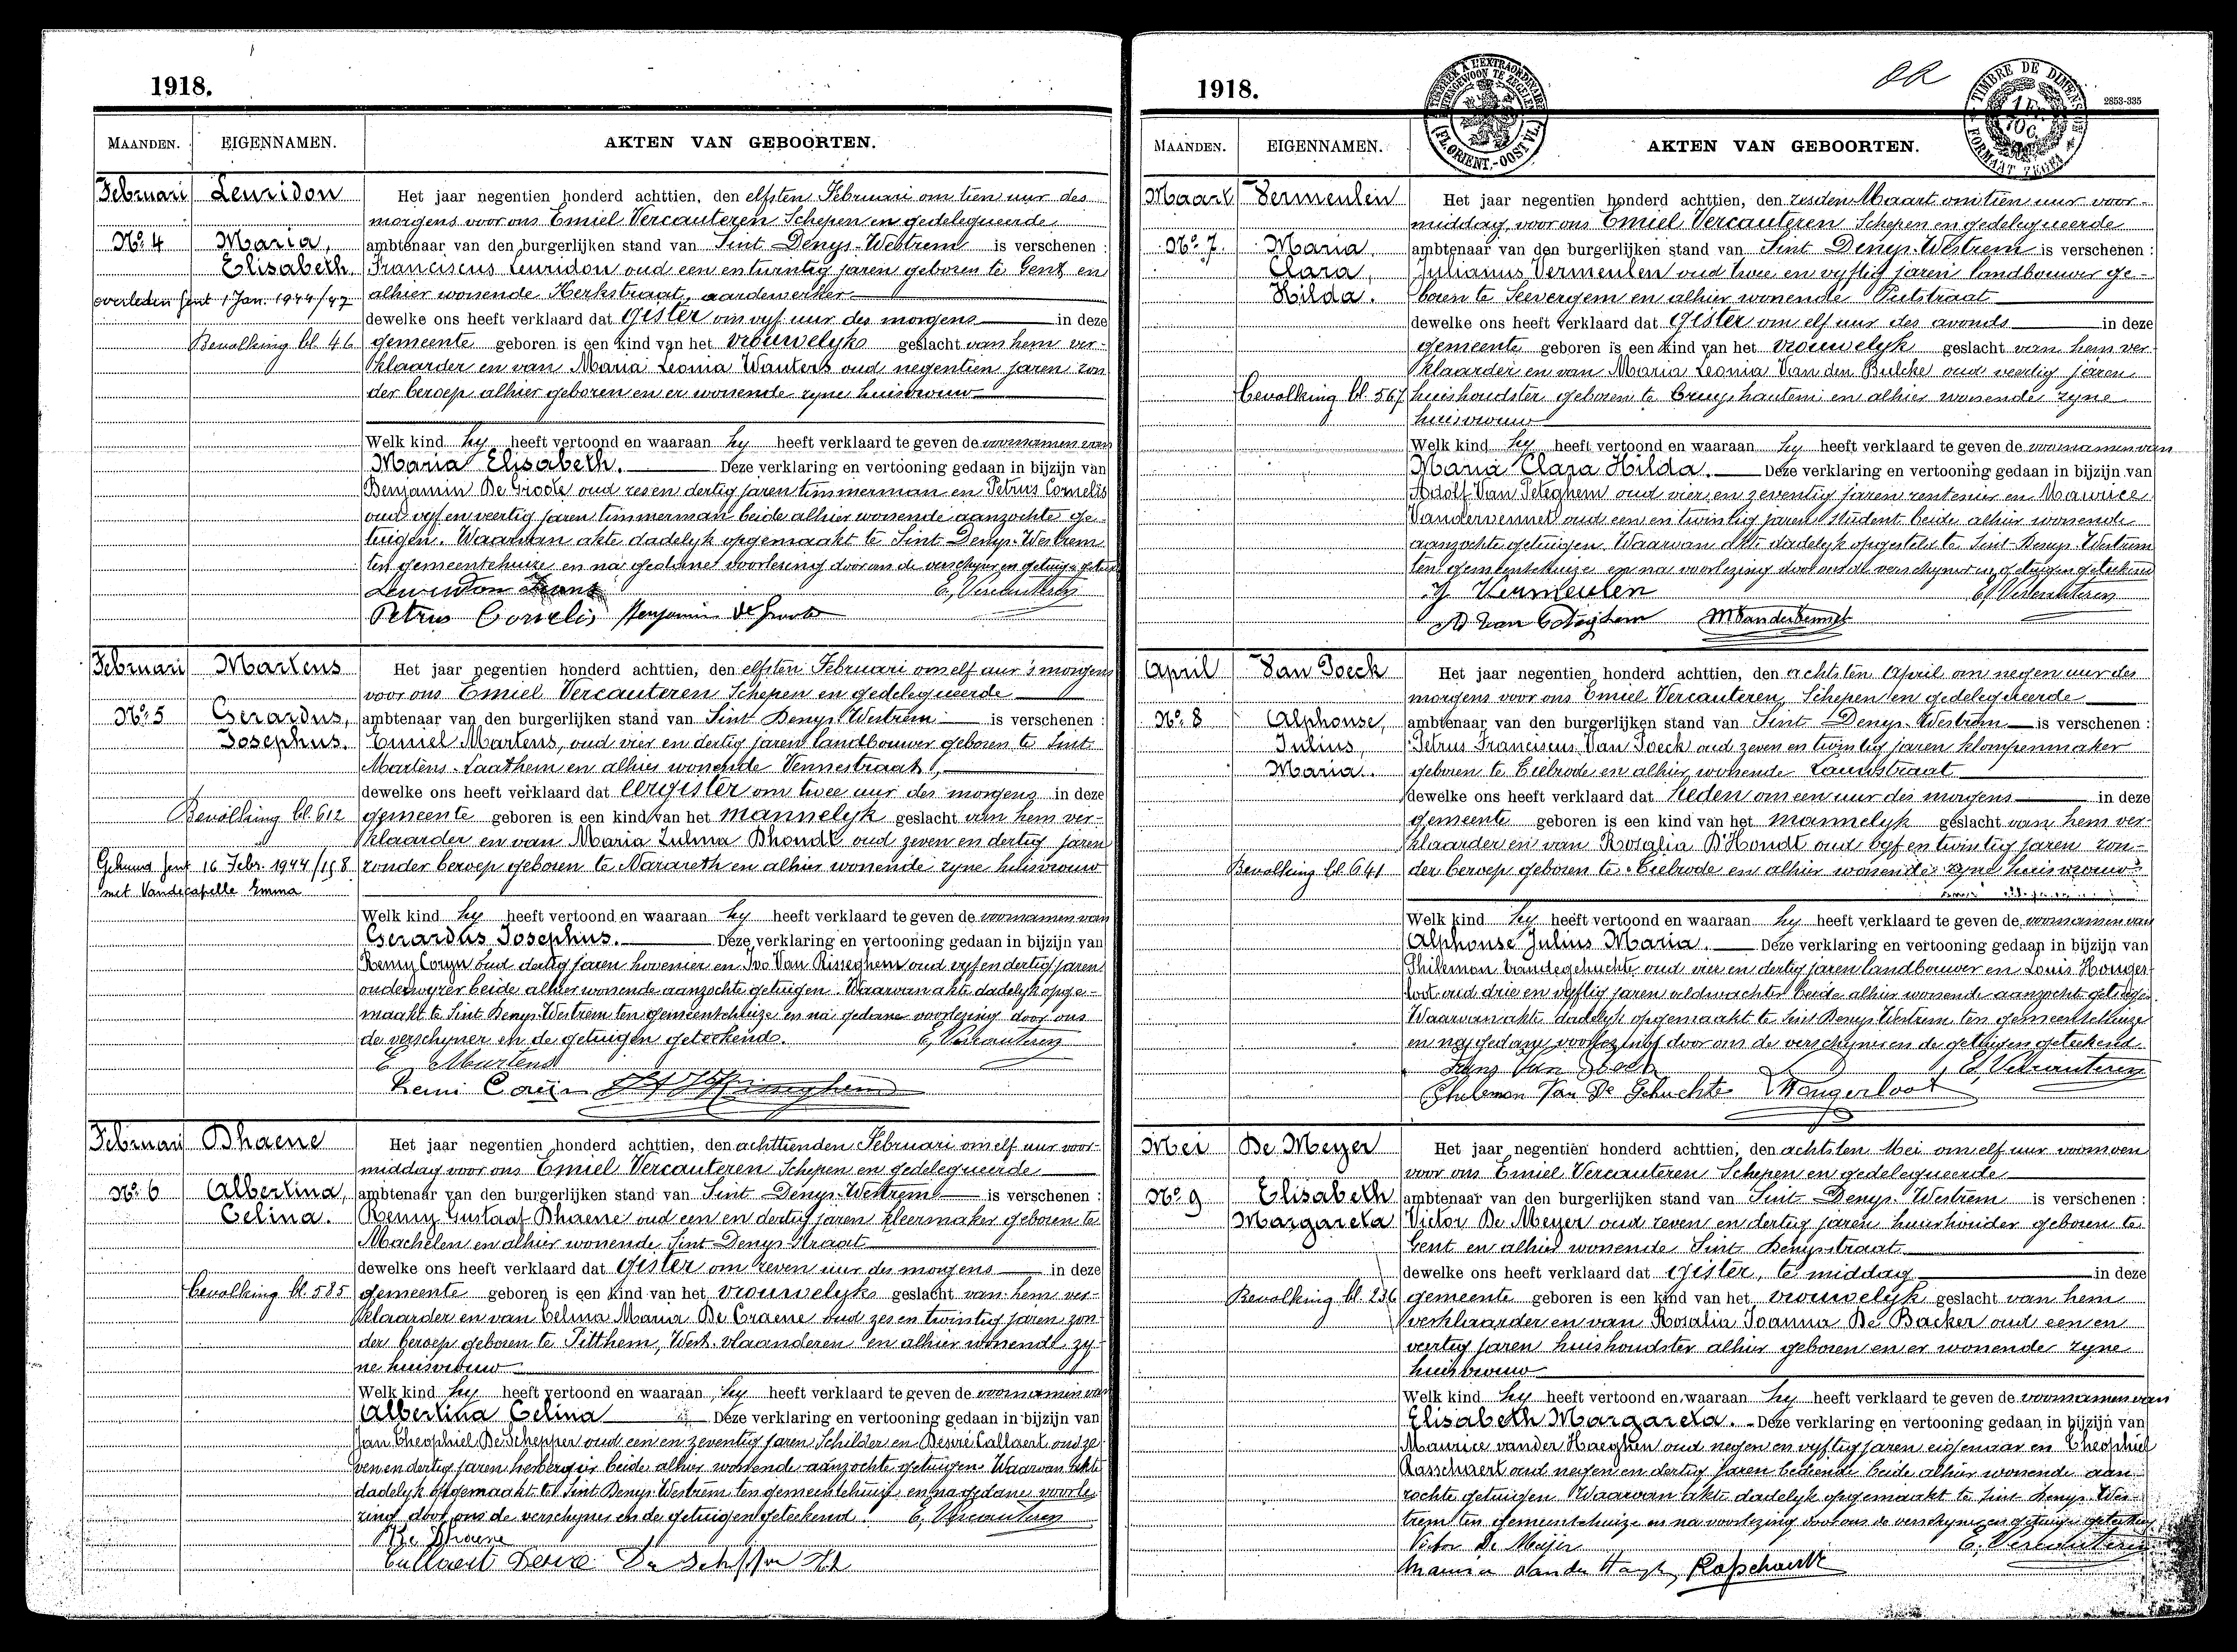 1918.
MAANDEN. EIGENNAMEN. AKTEN VAN GEBOORTEN.
Februari Leuridon Het jaar negentien honderd achttien, den elfsten Februari om tien uur des
morgens voor ons Emiel Vercauteren Schepen en gedelegueerde
No. 4 Maria, ambtenaar van den burgerlijken stand van Sint Denys-Westrem is verschenen :
Elisabeth. Franciscus Leuridon oud een en twintig jaren geboren te Gent en
overleden Gent 1 Jan. 1944/47 alhier wonende Kerkstraat, aardewerker
dewelke ons heeft verklaard dat Gister om vyf uur des morgens in deze
Bevolking bl. 46 gemeente geboren is een kind van het vrouwelyks geslacht van hem ver-
klaarder en van Maria Leonia Wauters oud negentien jaren zon
der beroep alhier geboren en er wonende zyne huisvrouw
Welk kind hy heeft vertoond en waaraan hy heeft verklaard te geven de voornamen van
Maria Elisabeth. Deze verklaring en vertooning gedaan in bijzijn van
Benjamin De Groote oud zes en dertig jaren timmerman en Petrus Cornelis
oud vyf en veertig jaren timmerman beide alhier wonende aanzochte ge-
tuigen. Waarvan akte dadelyk opgemaakt te Sint Denys-Westrem
ten gemeentehuize en na gedane voorlezing door ons de verschyner en getuigen geteek
Leuridon Frans E, Vercauteren
Petrus Cornelis Benjamin De Groote
Februari Martens Het jaar negentien honderd achttien, den elfsten Februari om elf uur 's morgens
voor ons Emiel Vercauteren Schepen en gedelegueerde
No. 5 Gerardus, ambtenaar van den burgerlijken stand van Sint Denys Westrem is verschenen :
Josephus. Emiel Martens, oud vier en dertig jaren landbouwer geboren te Sint
Martens-Laathem en alhier wonende Vennestraat,
dewelke ons heeft verklaard dat eergister om twee uur des morgens in deze
Bevolking bl. 612 gemeente geboren is een kind van het mannelyk geslacht van hem ver-
klaarder en van Maria Zulma Dhondt oud zeven en dertig jaren
Gehuwd Gent 16 Febr. 1944/158 zonder beroep geboren te Nazareth en alhier wonende zyne huisvrouw
met Vandecapelle Emma
Welk kind hy heeft vertoond en waaraan hy heeft verklaard te geven de voornamen van
Gerardus Josephus. Deze verklaring en vertooning gedaan in bijzijn van
Remy Coryn oud dertig jaren hovenier en Ivo Van Risseghem oud vyf en dertig jaren
onderwyzer beide alhier wonende aanzochte getuigen. Waarvan akte dadelyk opge-
maakt te Sint Denys-Westrem ten gemeentehuize en na gedane voorlezing door ons
de verschyner en de getuigen geteekend. E, Vercauteren
E Martens
Remi Coryn
Februari Dhaene Het jaar negentien honderd achttien, den achttienden Februari om elf uur voor-
middag voor ons Emiel Vercauteren Schepen en gedelegueerde
No. 6 Albertina, ambtenaar van den burgerlijken stand van Sint Denys-Westrem is verschenen :
Celina. Remy Gustaaf Dhaene oud een en dertig jaren kleermaker geboren te
Machelen en alhier wonende Sint-Denys straat
dewelke ons heeft verklaard dat Gister om zeven uur des morgens in deze
bevolking bl. 585 gemeente geboren is een kind van het vrouwelyks geslacht van hem ver-
klaarder en van Celina Maria De Craene oud zes en twintig jaren zon
der beroep geboren te Pitthem, West-vlaanderen en alhier wonende zy-
ne huisvrouw
Welk kind hy heeft vertoond en waaraan hy heeft verklaard te geven de voornamen van
Albertina Celina Deze verklaring en vertooning gedaan in bijzijn van
Jan Theophiel De Schepper oud een en zeventig jaren Schilder en Desiré Callaert oud ze
ven en dertig jaren herbergier beide alhier wonende aanzochte getuigen. Waarvan akte
dadelyk opgemaakt te Sint Denys Westrem ten gemeentehuize en na gedane voorle
zing door ons de verschyner en de getuigen geteekend. E, Vercauteren
Dhaene
Callaert Desiré De Schepper
1918.
TIMBRE A L'EXTRAORDINAIRE
(FL. ORIENT.-OOST VL.)
TIMBRE DE DIMENSION
FORMAAT ZEGEL
2853-335
MAANDEN. EIGENNAMEN. AKTEN VAN GEBOORTEN.
Maart Vermeulen Het jaar negentien honderd achttien, den zesden Maart om tien uur voor-
middag, voor ons Emiel Vercauteren Schepen en gedelegueerde
No. 7. Maria ambtenaar van den burgerlijken stand van Sint Denys-Westrem is verschenen :
Clara, Julianus Vermeulen oud twee en vyftig jaren landbouwer ge-
Hilda. boren te Seevergem en alhier wonende Putstraat
dewelke ons heeft verklaard dat Gister om elf uur des avonds in deze
gemeente geboren is een kind van het vrouwelyk geslacht van hem ver-
klaarder en van Maria Leonia Van den Bulcke oud veertig jaren
bevolking bl. 567 huishoudster geboren te Cruyshautem en alhier wonende zyne
huisvrouw
Welk kind hy heeft vertoond en waaraan hy heeft verklaard te geven de voornamen van
Maria Clara Hilda. Deze verklaring en vertooning gedaan in bijzijn van
Adolf Van Peteghem oud vier en zeventig jaren rentenier en Maurice
Vandervennet oud een en twintig jaren student beide alhier wonende
aanzochte getuigen. Waarvan akte dadelyk opgesteld te Sint-Denys-Westrem
ten gemeentehuize en na voorlezing door ons de verschyner en getuigen geteekend
J Vermeulen E, Vercauteren
Ad Van Peteghem M Vandervennet
April Van Poeck Het jaar negentien honderd achttien, den achtsten April om negen uur des
morgens voor ons Emiel Vercauteren, Schepen en gedelegueerde
No. 8 Alphonse, ambtenaar van den burgerlijken stand van Sint-Denys-Westrem is verschenen :
Julius, Petrus Franciscus Van Poeck oud zeven en twintig jaren klompenmaker
Maria. geboren te Elelrode en alhier wonende Lauwstraat
dewelke ons heeft verklaard dat Heden om een uur des morgens in deze
gemeente geboren is een kind van het mannelyk geslacht van hem ver-
klaarder en van Rosalia D'Hondt oud vyf en twintig jaren zon-
Bevolking bl. 641 der beroep geboren te en alhier wonende zyne huisvrouw
Welk kind hy heeft vertoond en waaraan hy heeft verklaard te geven de voornamen van
Alphonse Julius Maria. Deze verklaring en vertooning gedaan in bijzijn van
Philemon Vandegehuchte oud vier en dertig jaren landbouwer en Louis Honger
loot oud drie en vyftig jaren veldwachter beide alhier wonende aanzochte getuigen
Waarvan akte dadelyk opgemaakt te Sint Denys Westrem ten gemeentehuize
en na gedane voorlezing door ons de verschyner en de getuigen geteekend.
Frans Van Poeck E, Vercauteren
Philemon Van De Gehuchte Hongerloot
Mei De Meyer Het jaar negentien honderd achttien, den achtsten Mei om elf uur voornoen
voor ons Emiel Vercauteren Schepen en gedelegueerde
No. 9 Elisabeth ambtenaar van den burgerlijken stand van Sint-Denys-Westrem is verschenen :
Margareta Victor De Meyer oud zeven en dertig jaren huurhouder geboren te
Gent en alhier wonende Sint Denysstraat
dewelke ons heeft verklaard dat Gister, te middag in deze
Bevolking bl 236 gemeente geboren is een kind van het vrouwelyk geslacht van hem
verklaarder en van Rosalia Joanna De Backer oud een en
veertig jaren huishoudster alhier geboren en er wonende zyne
huisvrouw
Welk kind hy heeft vertoond en waaraan hy heeft verklaard te geven de voornamen van
Elisabeth Margareta. Deze verklaring en vertooning gedaan in bijzijn van
Maurice vander Haeghen oud negen en vyftig jaren eigenaar en Theophiel
Rasschaert oud negen en dertig jaren bediende beide alhier wonende aan-
zochte getuigen. Waarvan akte dadelyk opgemaakt te Sint Denys-Wes-
trem ten gemeentehuize en na voorlezing door ons de verschyner en getuigen geteekend
Victor De Meyer E, Vercauteren
Maurice vander Haeghen Rasschaert